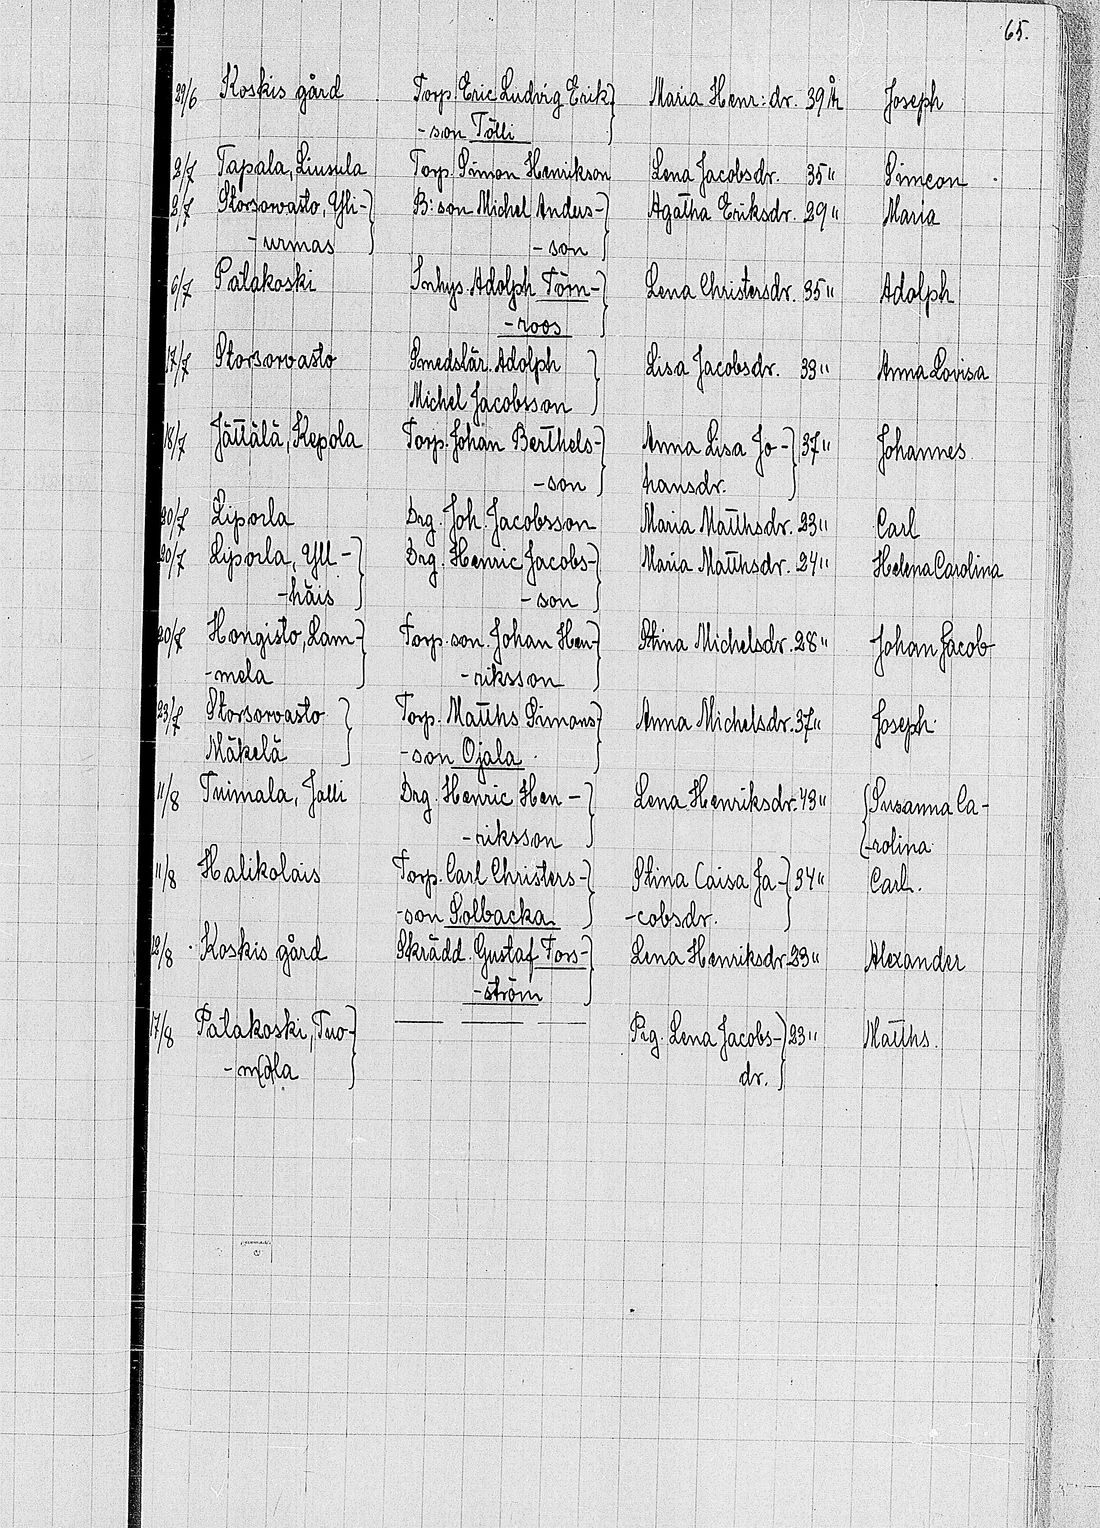 65.
29/6 Koskis gård Torp. Eric Ludvig Erik- Maria Henr: dr. 39 år Joseph
-son Tölli
2/7 Tapala, Liusula Torp. Simon Henrikson Lena Jacobsdr. 35 " Simeon
2/7 Storsorvasto, Yli- B: son Michel Anders- Agatha Eriksdr. 29 " Maria
-urmas -son
6/7 Patakoski Inhys. Adolph Törn- Lena Christersdr. 35 " Adolph
-roos
17/7 Storsorvasto Smedslär. Adolph Lisa Jacobsdr. 33 " Anna Lovisa
Michel Jacobsson
18/7 Jättälä, Kepola Torp. Johan Berthels- Anna Lisa Jo- 37 " Johannes
-son hansdr.
20/7 Liporla Drg. Joh. Jacobsson Maria Matthsdr. 23 " Carl
20/7 Liporla, Yli- Drg. Henric Jacobs- Maria Matthsdr. 24 " Helena Carolina
-häis -son
20/7 Hongisto, Lam- Torp. son. Johan Hen- Stina Michelsdr. 28 " Johan Jacob
-mela -riksson
23/7 Storsorvasto Torp. Matths Simons Anna Michelsdr. 37 " Joseph
Mäkelä -son Ojala
11/8 Tuimala, Jalli Drg. Henric Hen- Lena Henriksdr. 43 " Susanna Ca-
-riksson -rolina
11/8 Halikolais Torp. Carl Christers- Stina Caisa Ja- 34 " Carl.
-son Solbacka -cobsdr.
Koskis gård Skrädd. Gustaf Fors- Lena Henriksdr. 23 " Alexander
-ström
17/8 Patakoski, Tuo- — — — Pig. Lena Jacobs- 23 " Matths.
-m(o)la dr.